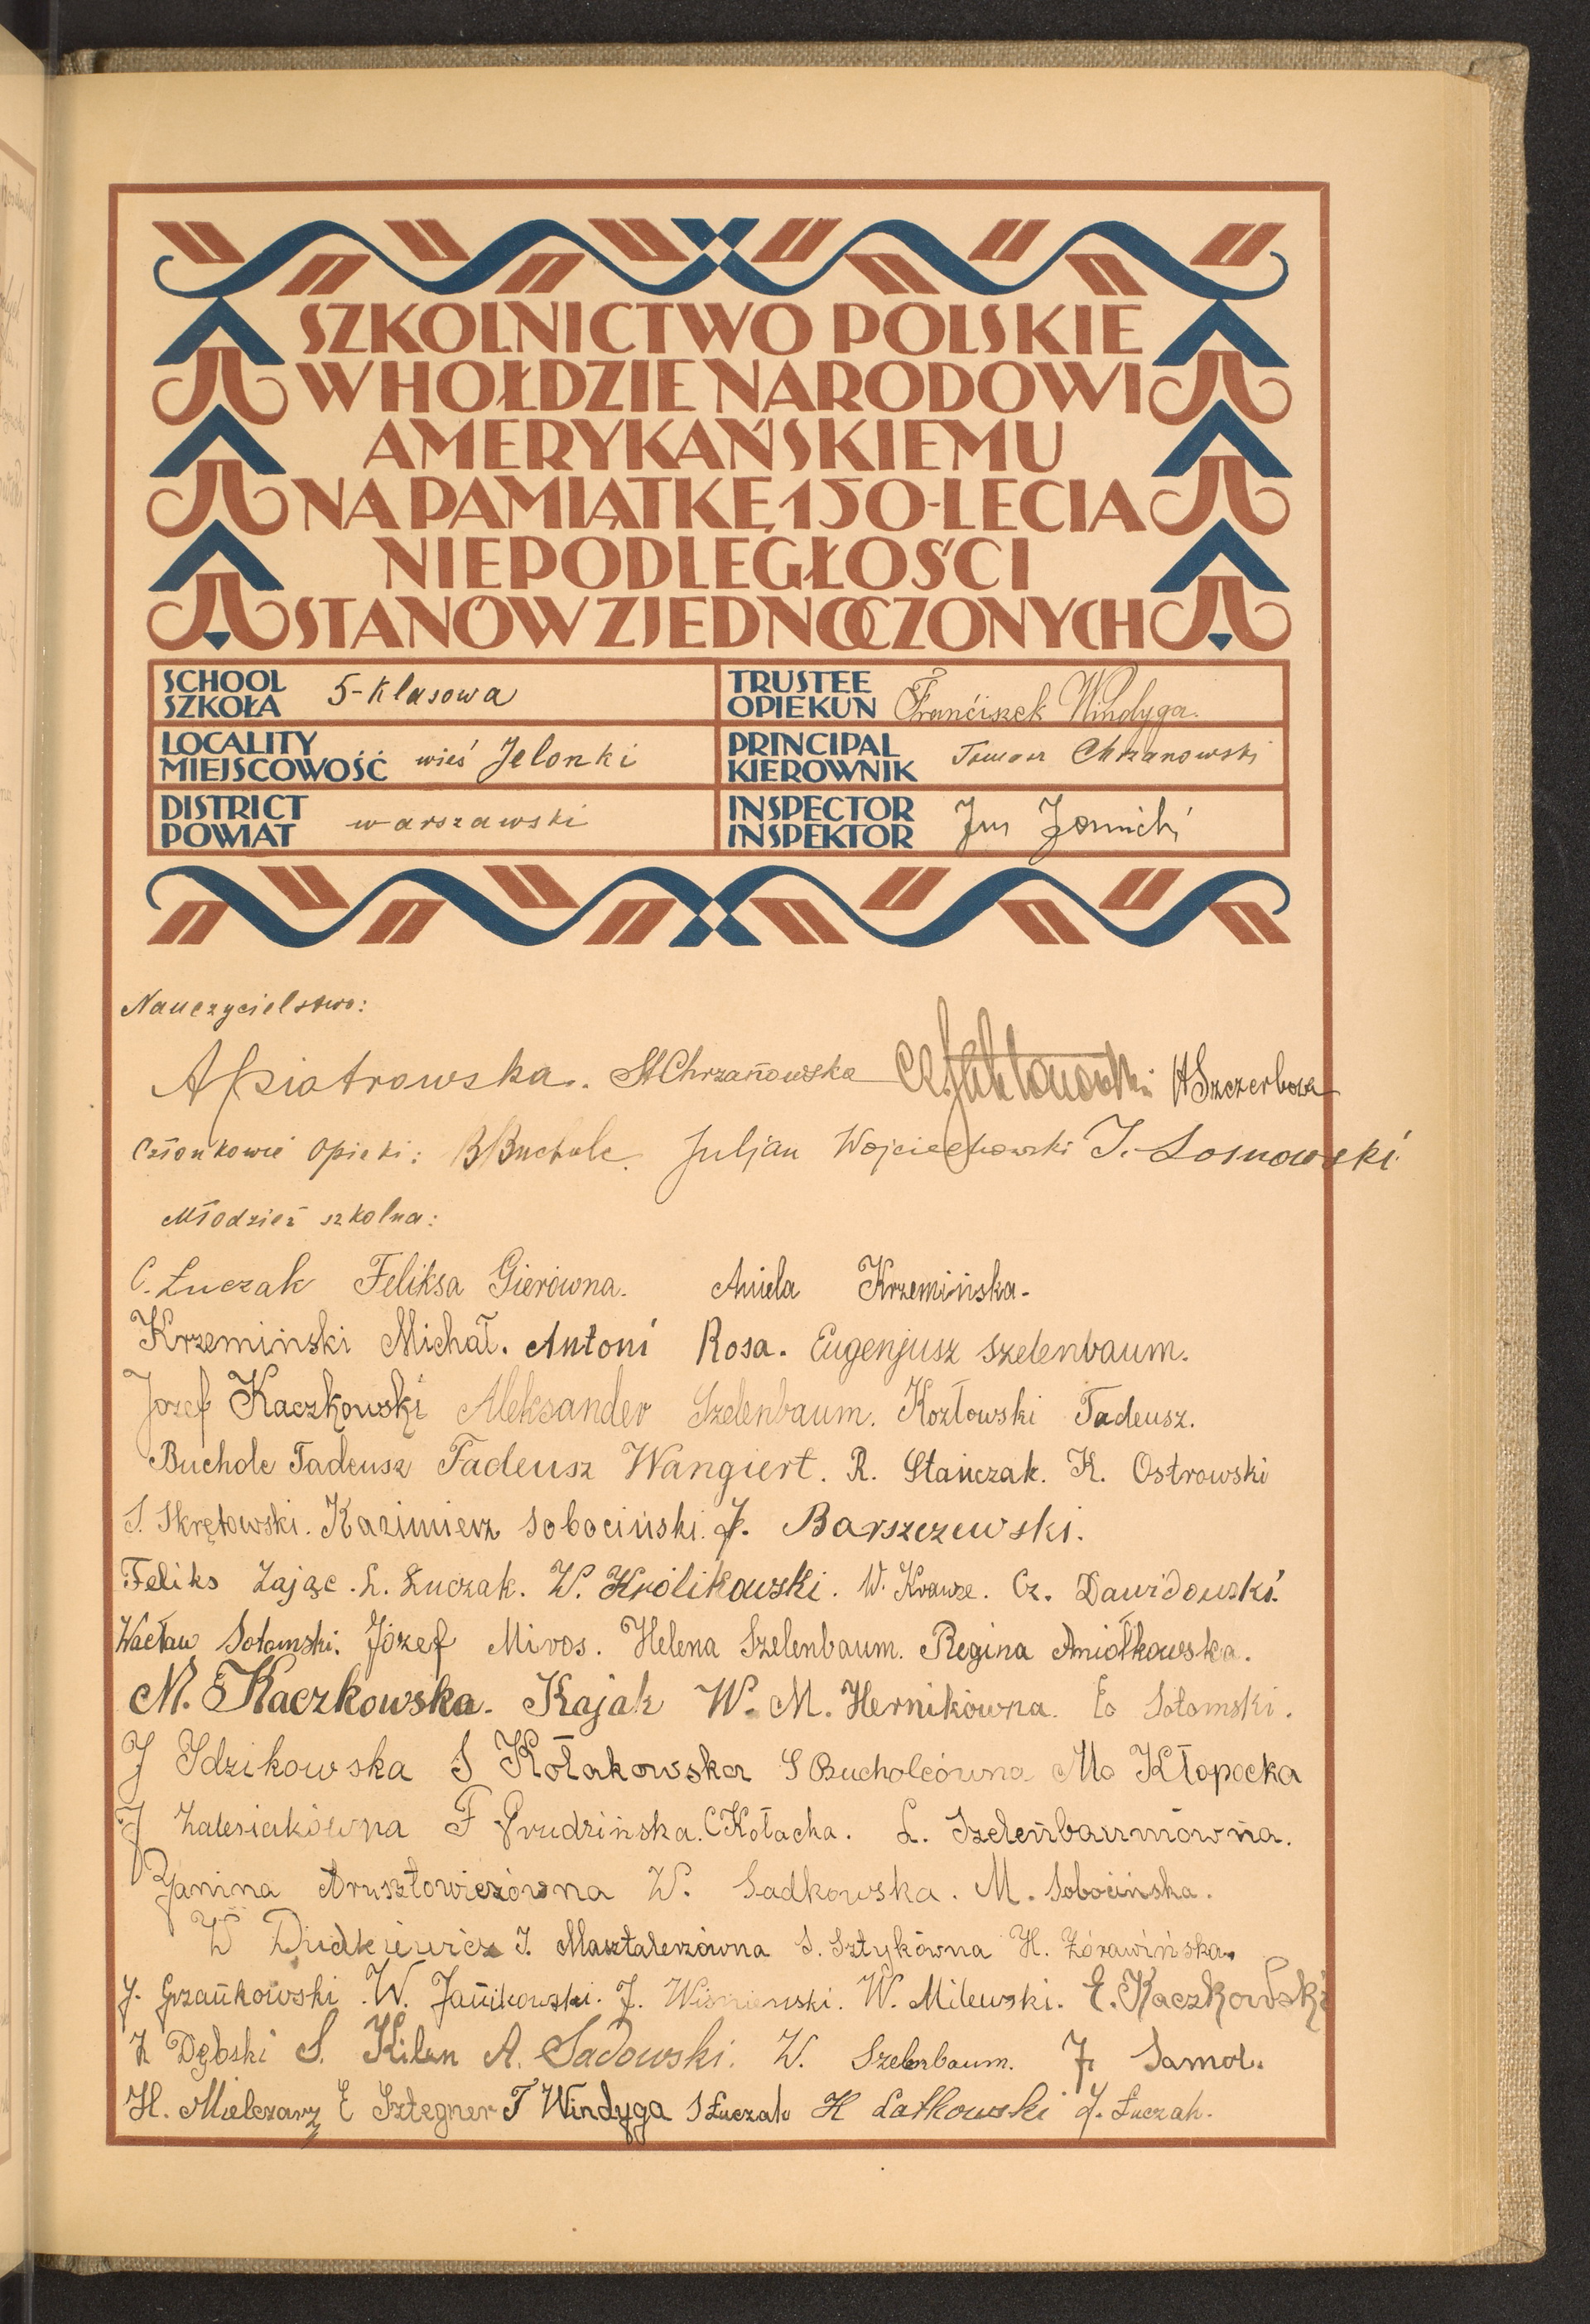 SZKOLNICTWO POLSKIE
W HOŁDZIE NARODOWI
AMERYKAŃSKIEMU
NA PAMIĄTKĘ 150-LECIA
NIEPODLEGŁOŚCI
STANÓW ZJEDNOCZONYCH
SCHOOL SZKOŁA 5-klasowa
TRUSTEE OPIEKUN Franciszek Windyga.
LOCALITY MIEJSCOWOŚĆ wieś Jelonki
PRINCIPAL KIEROWNIK Tomasz Chrzanowski
DISTRICT POWIAT warszawski
INSPECTOR INSPEKTOR
Nauczycielstwo:
A Piotrowska. St Chrzanowska H Szczerbowa
Członkowie Opieki: B Bucholc. Juljan Wojciechowski J. Sosnowski
Młodzież szkolna:
C. Łuczak Feliksa Gierówna. Aniela Krzemińska.
Krzemiński Michał. Antoni Rosa. Eugenjusz Szelenbaum.
Józef Kaczkowski Aleksander Szelenbaum. Kozłowski Tadeusz.
Bucholc Tadeusz Tadeusz Wangiert. R. Stańczak. K. Ostrowski
S. Skrętowski. Kazimierz Sobociński. J. Barszczewski.
Feliks Zając. L. Łuczak. W. Królikowski. W. Krauze. Cz. Dawidowski.
Wacław Sołomski. Józef Miros. Helena Szelenbaum. Regina Aniołkowska.
M. Kaczkowska. Kajak W. M. Hernikówna. E. Sołomski.
J Idzikowska S Kołakowska S Bucholcówna M. Kłopocka
J Zalesiakówna F Grudzińska. C Kołacha. L. Szelenbaumówna.
Janina Arusztowiczówna W. Sadkowska. M. Sobocińska.
W Dudkiewicz J. Masztalerzówna S. Sztykówna H. Żórawińska.
J. Grzankowski. W. Jańikowski. J. Wiśniewski. W. Milewski. E. Kaczkowski
Z Dębski S. Kilen A. Sadowski. W. Szelenbaum. J. Samol.
H. Mielczarz E Sztegner T Windyga S Łuczak H Latkowski J. Łuczak.